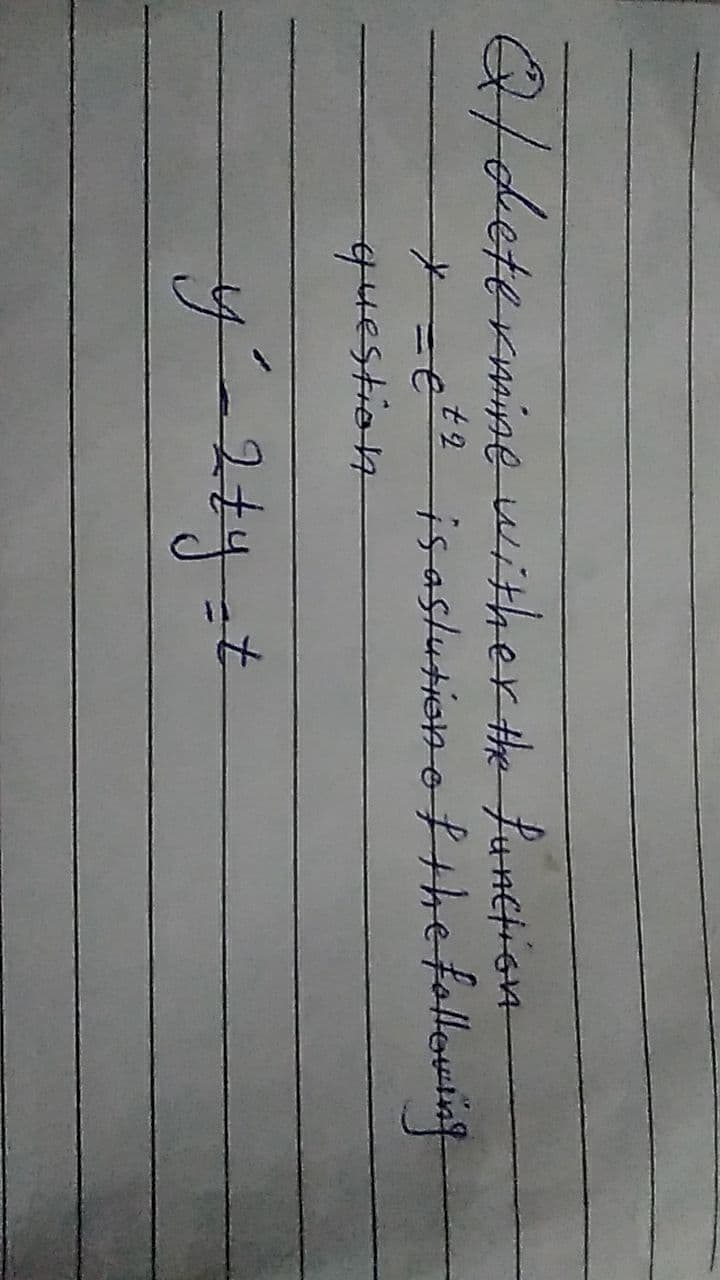 Q/ determine wither the function
x = e^t2 is aslution of the following
question
y' - 2ty = t